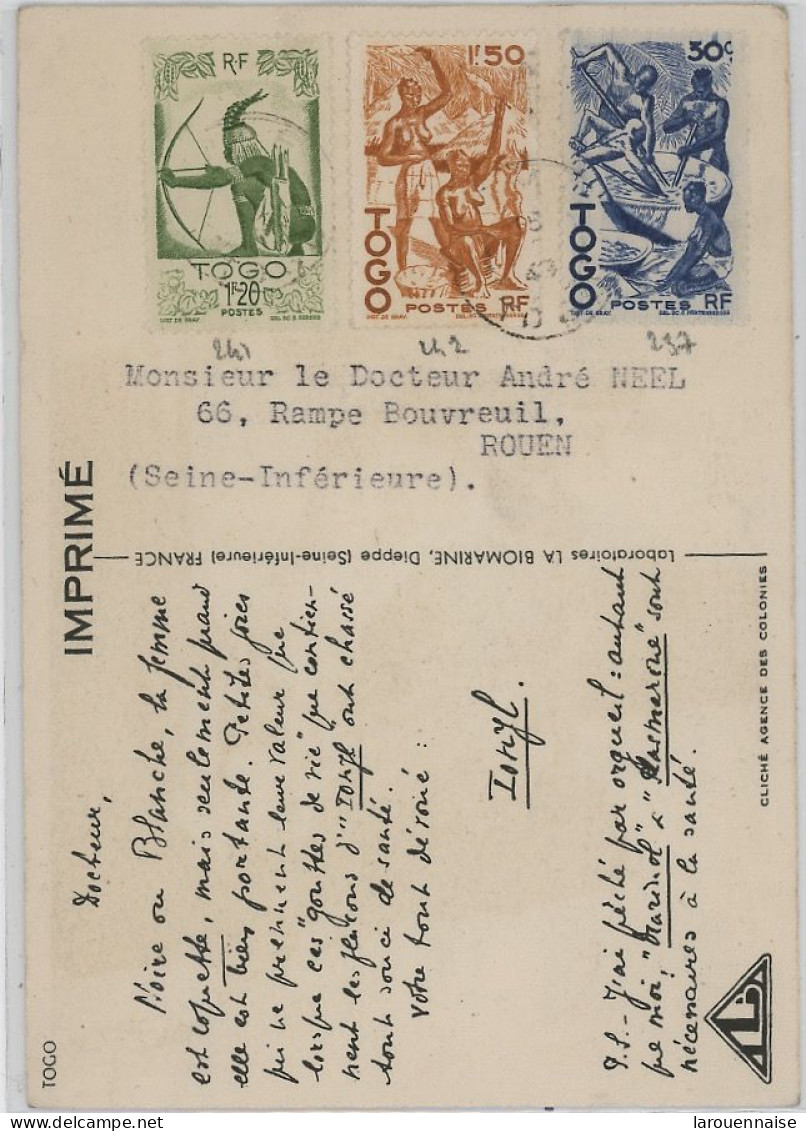 RF
TOGO
1F20
POSTES
1F50
TOGO
POSTES RF
30c
TOGO
POSTES RF
241
242
237
Monsieur le Docteur André NEEL
66, Rampe Bouvreuil,
ROUEN
(Seine-Inférieure).
IMPRIMÉ
Laboratoires LA BIOMARINE, Dieppe (Seine-Inférieure) FRANCE
Docteur,
Noire ou Blanche, la femme
est coquette, mais seulement quand
elle est bien portante. Petites joies
qui ne prennent leur valeur que
lorsque ces "gouttes de vie" que contien-
nent les flacons d'"Ionyl" ont chassé
tout souci de santé.
Votre tout dévoué :
Ionyl.
P.S. - J'ai péché par orgueil : autant
que moi, "Marinol" & "Plasmarine" sont
nécessaires à la santé.
CLICHÉ AGENCE DES COLONIES
TOGO
larouennaise